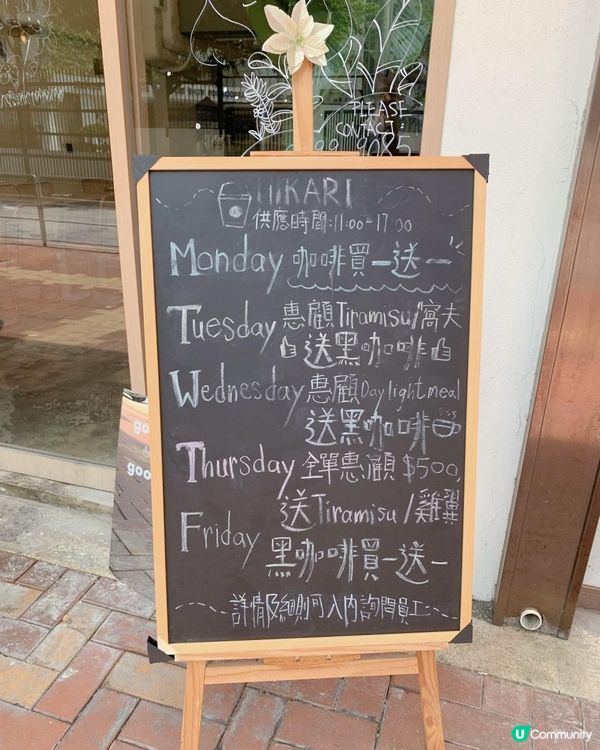 PLEASE
CONTACT:
9085
HIKARI
供應時間:11:00-17:00
Monday 咖啡買一送一
Tuesday 惠顧Tiramisu/窩夫
送黑咖啡
Wednesday 惠顧Day light meal
送黑咖啡
Thursday 全單惠顧 $500,
送Tiramisu/雞翼
Friday 黑咖啡買一送一
詳情及細則可入內詢問員工
go
goo
U Community